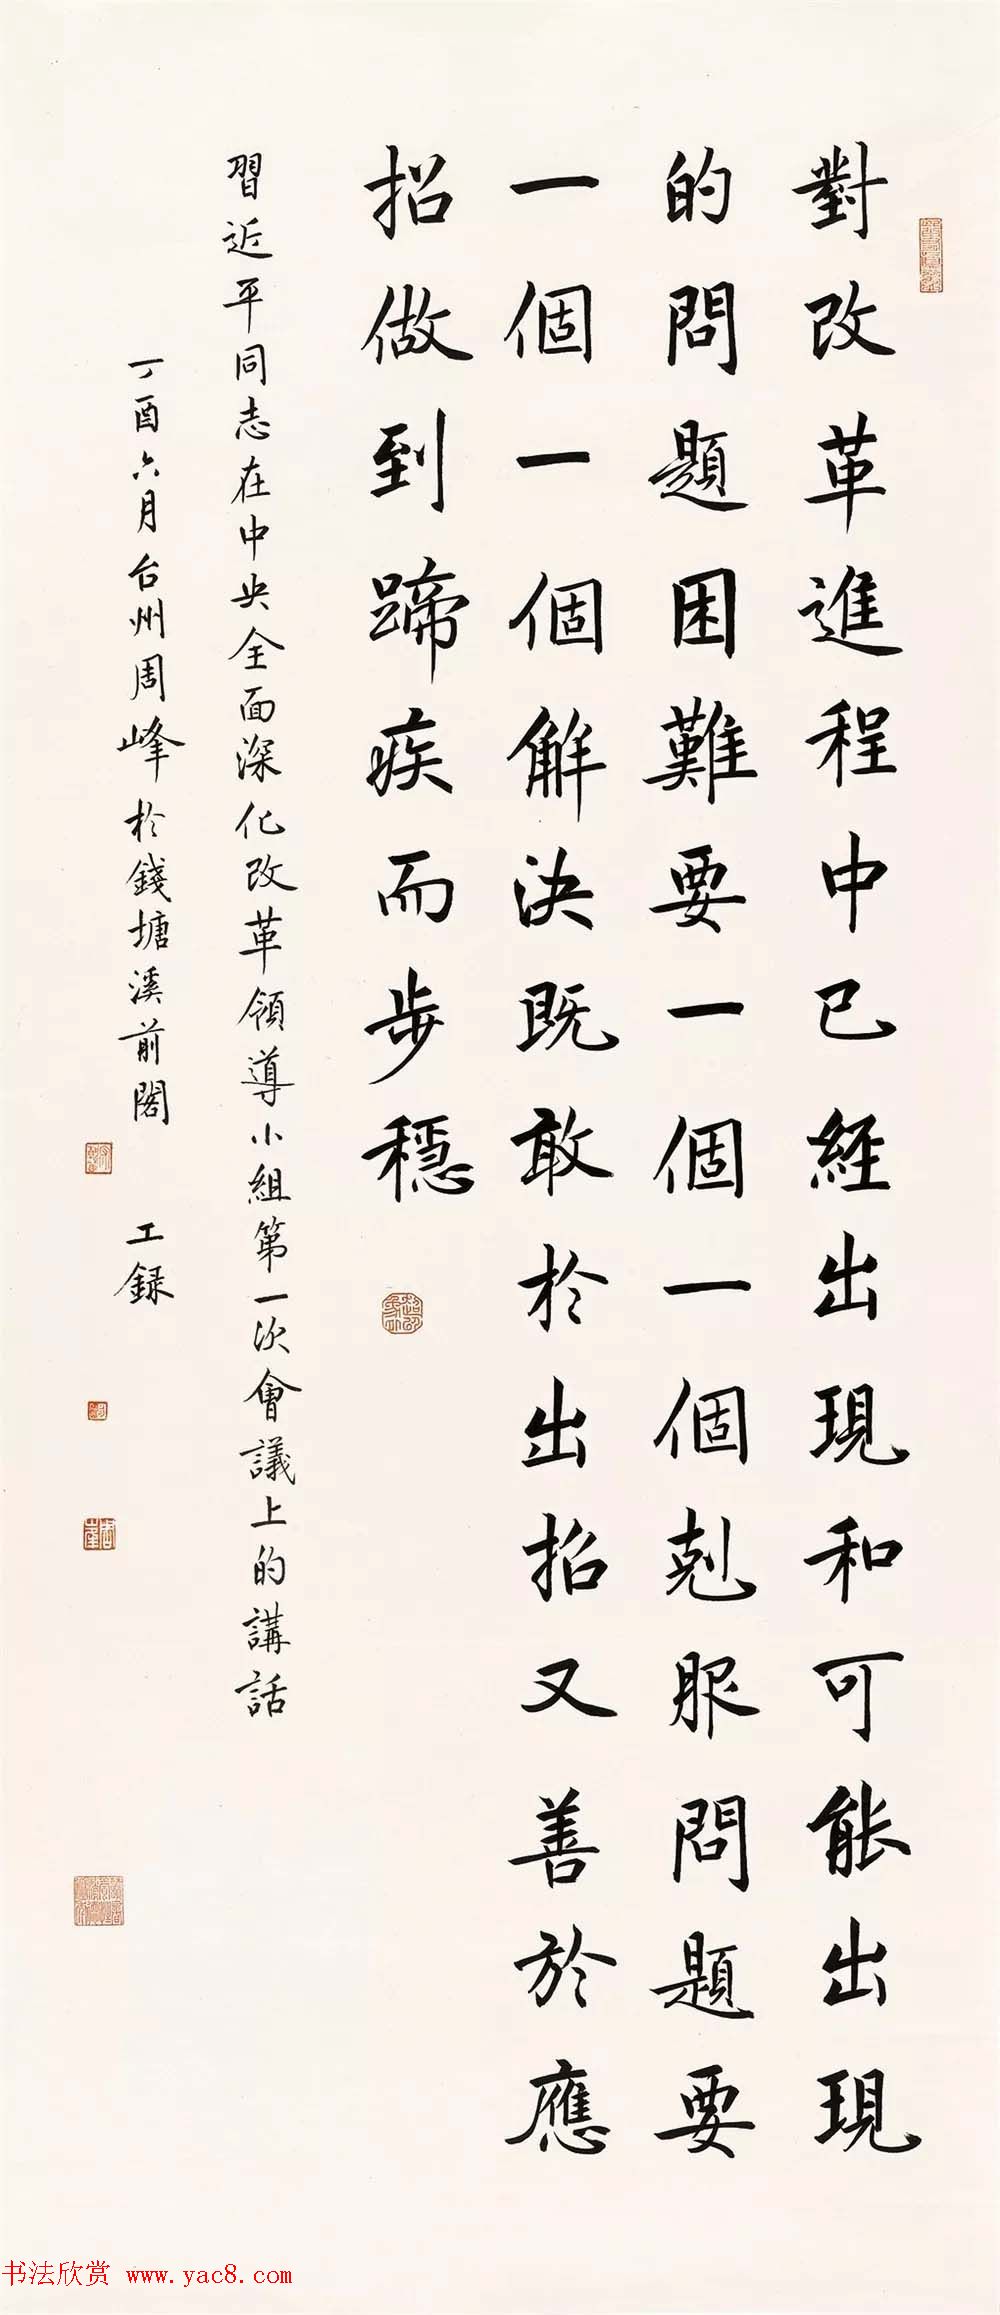 對改革進程中已經出現和可能出現
的問題困難要一個一個剋服問題要
一個一個解決既敢於出招又善於應
招做到蹄疾而步穩
習近平同志在中央全面深化改革領導小組第一次會議上的講話
丁酉六月台州周峰於錢塘溪前閣 工録
书法欣赏 www.yac8.com